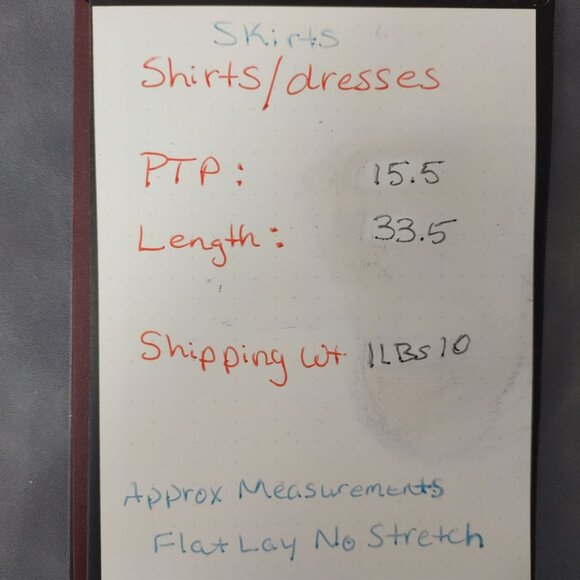 Skirts
Shirts/dresses
PTP: 15.5
Length: 33.5
Shipping Wt 1LBs 10
Approx Measurements
Flat Lay No Stretch